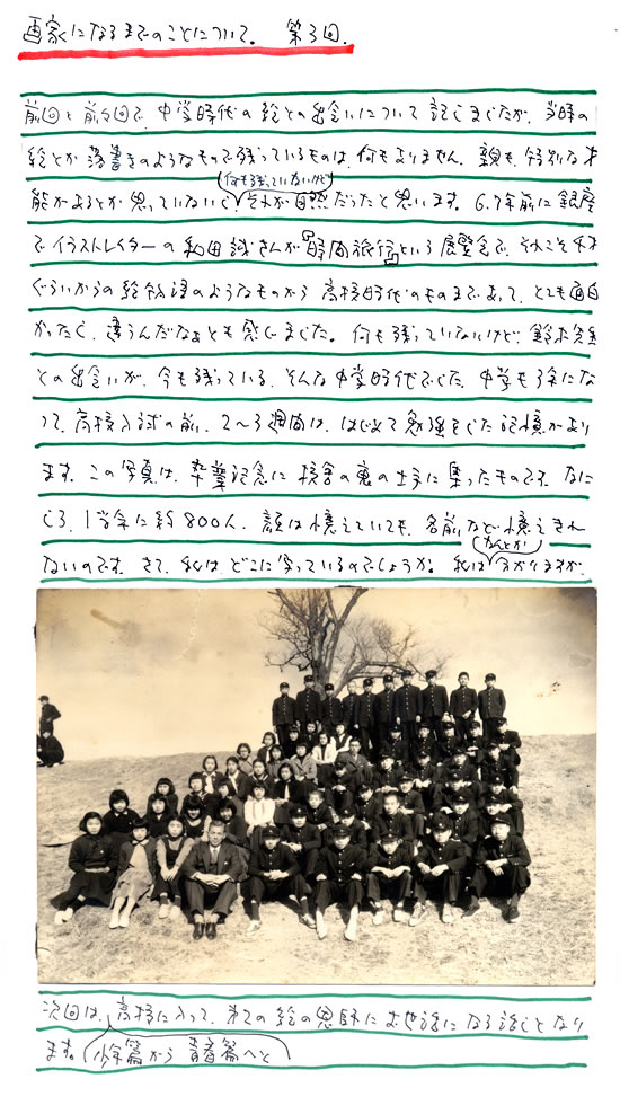 画家になるまでのことについて。 第3回.
前回と前々回で、中学時代の絵との出会いについて記しましたが、当時の
絵とか落書きのようなもので残っているものは、何もありません。親も、特別な才
能があるとか思っていないし、(何も残っていないけど)それが自然だったと思います。6,7年前に銀座
でイラストレイターの和田誠さんが『時間旅行』という展覧会で、それこそ4才
ぐらいからの絵物語のようなものから 高校時代のものまであって、とても面白
かったし、違うんだなぁとも感じました。何も残っていないけど、鈴木先生
との出会いが、今も残っている、そんな中学時代でした。中学も3年にな
って、高校入試の前、2〜3週間は、はじめて勉強をした記憶があり
ます。この写真は、卒業記念に校舎の裏の土手に集ったものです。なに
しろ、1学年に約800人、顔は憶えていても、名前など憶えきれ
ないのです。さて、私はどこに写っているのでしょうか。私は(なんとか)分かりますが。
次回は、高校に入って、第2の絵の恩師にお世話になる話となり
ます。(少年篇から青春篇へと)